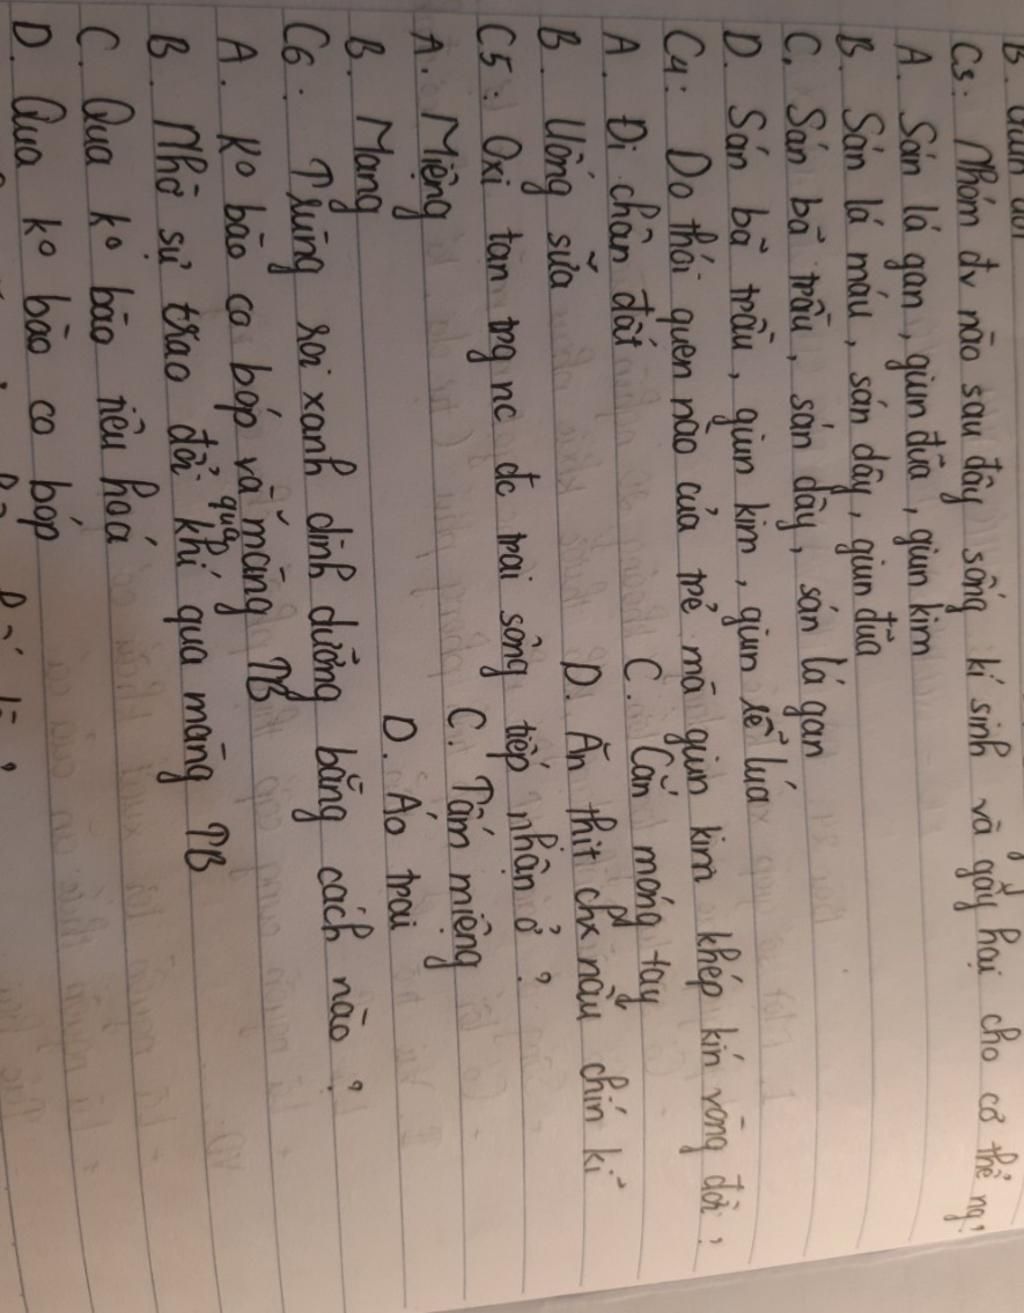 B. Giun đũa
C3. Nhóm đv nào sau đây sống kí sinh và gây hại cho cơ thể ng?
A. Sán lá gan, giun đũa, giun kim
B. Sán lá máu, sán dây, giun đũa
C. Sán bã trầu, sán dây, sán lá gan
D. Sán bã trầu, giun kim, giun rễ lúa
C4: Do thói quen nào của trẻ mà giun kim khép kín vòng đời?
A. Đi chân đất C. Cắn móng tay
B. Uống sữa D. Ăn thịt chx nấu chín kĩ
C5: Oxi tan trg nc đc trai sông tiếp nhận ở?
A. Miệng C. Tấm miệng
B. Mang D. Áo trai
C6. Trùng roi xanh dinh dưỡng bằng cách nào?
A. ko bào co bóp và qua màng TB
B. Nhờ sự trao đổi khí qua màng TB
C. Qua ko bào tiêu hoá
D. Qua ko bào co bóp